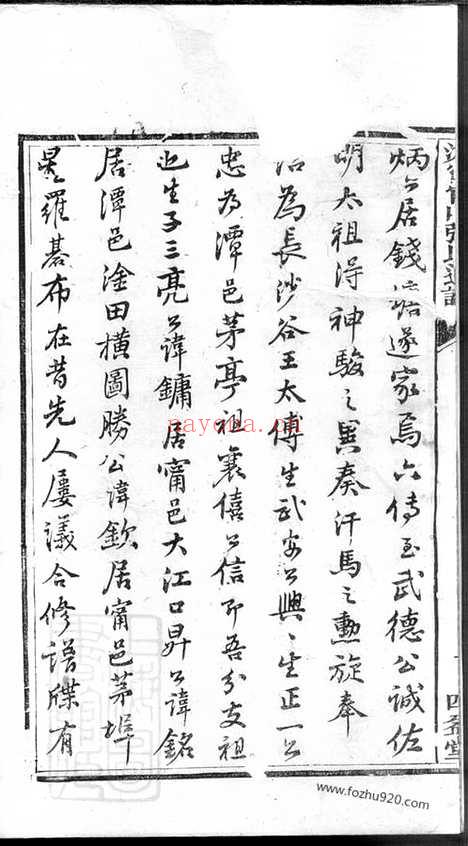 炳公居錢塘遂家焉六傳至武德公誠佐
明太祖得神駿之異奏汗馬之勳旋奉
為長沙谷王太傅生武安公興興生正一公
忠為潭邑茅亭祖襄僖公信即吾分支祖
也生子三亮公諱鏞居甯邑大江口昇公諱銘
居潭邑淦田橫圖勝公諱欽居甯邑茅埠
星羅碁布在昔先人屢議合修譜牒有
nayona.cn
www.fozhu920.com